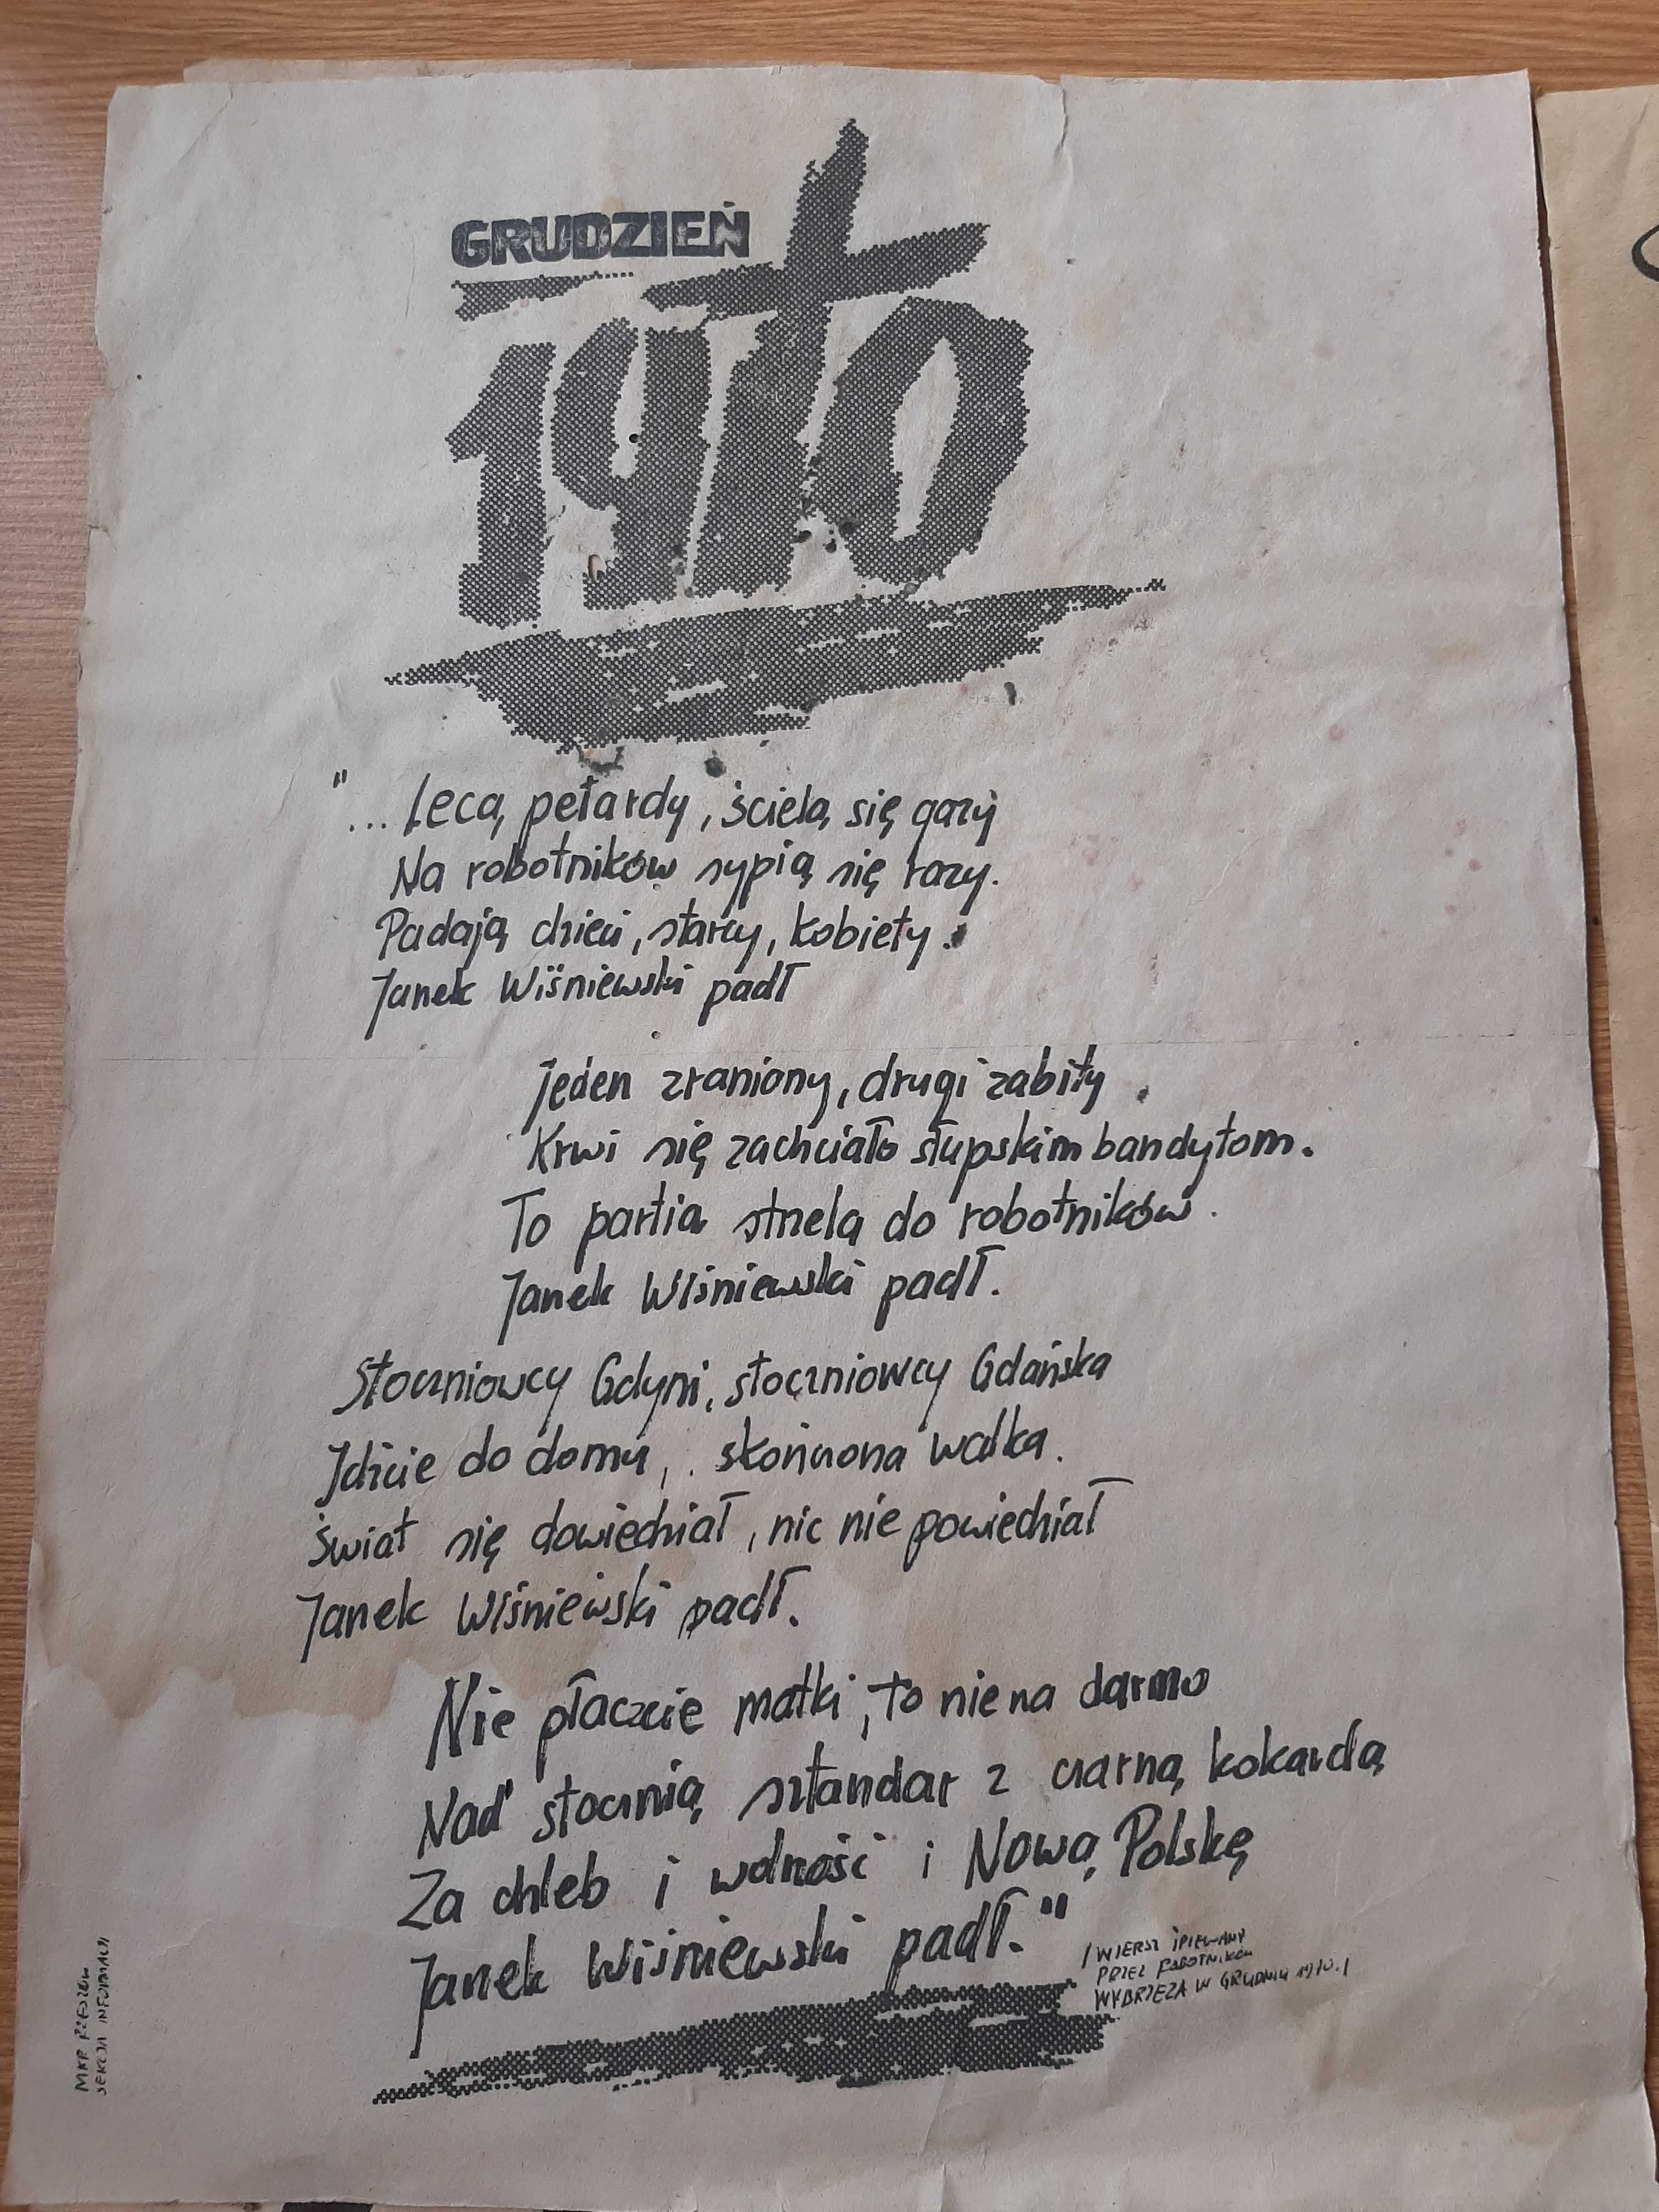 GRUDZIEŃ
1970
"... Lecą petardy, ścielą się gazy
Na robotników sypią się razy.
Padają dzieci, starcy, kobiety.
Janek Wiśniewski padł
Jeden zraniony, drugi zabity
Krwi się zachciało słupskim bandytom.
To partia strzela do robotników.
Janek Wiśniewski padł.
Stoczniowcy Gdyni, stoczniowcy Gdańska
Idzcie do domu, skończona walka.
Świat się dowiedział, nic nie powiedział
Janek Wiśniewski padł.
Nie płaczcie matki, to nie na darmo
Nad stocznią sztandar z czarną kokardą
Za chleb i wolność i Nową Polskę
Janek Wiśniewski padł."
/WIERSZ ŚPIEWANY
PRZEZ ROBOTNIKÓW
WYBRZEŻA W GRUDNIU 1970./
MKR RZESZÓW
SEKCJA INFORMACJI